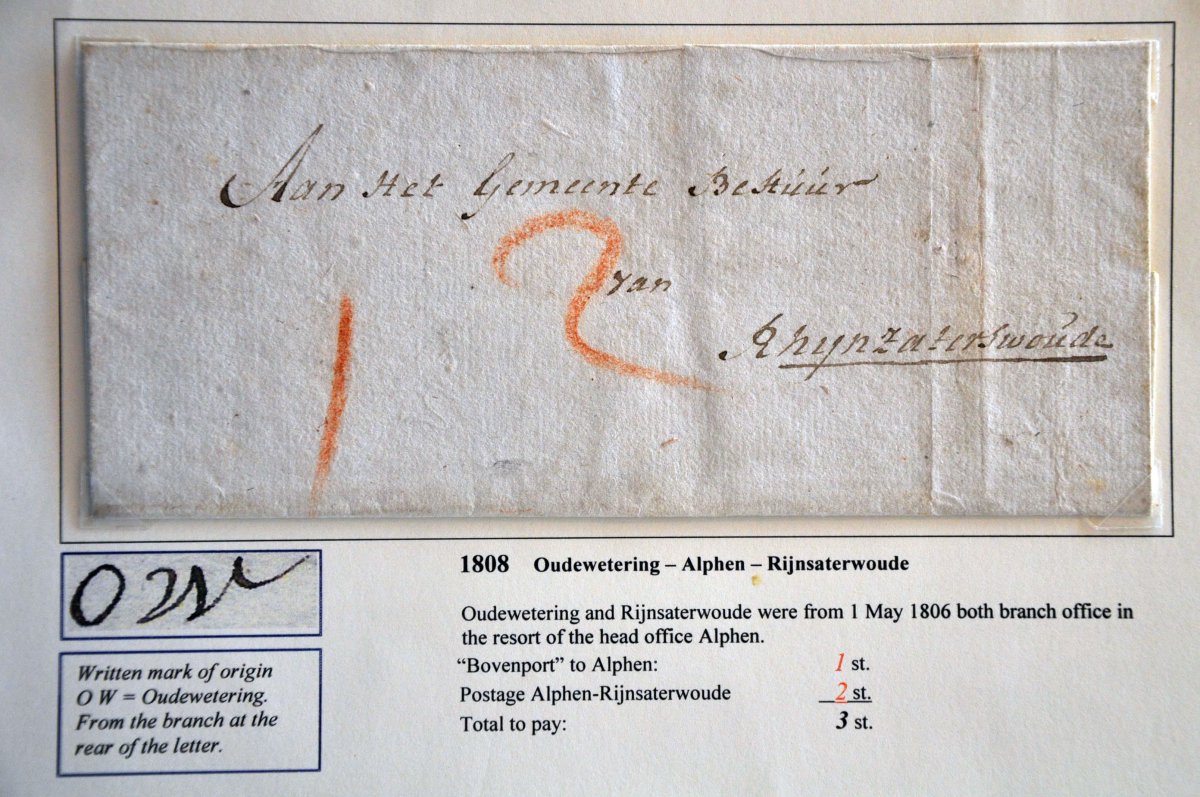 Aan Het Gemeente Bestúúr
1 2
van
Rhijnzaterswoúde
O W
Written mark of origin
O W = Oudewetering.
From the branch at the
rear of the letter.
1808 Oudewetering – Alphen – Rijnsaterwoude
Oudewetering and Rijnsaterwoude were from 1 May 1806 both branch office in
the resort of the head office Alphen.
“Bovenport” to Alphen: 1 st.
Postage Alphen-Rijnsaterwoude 2 st.
Total to pay: 3 st.